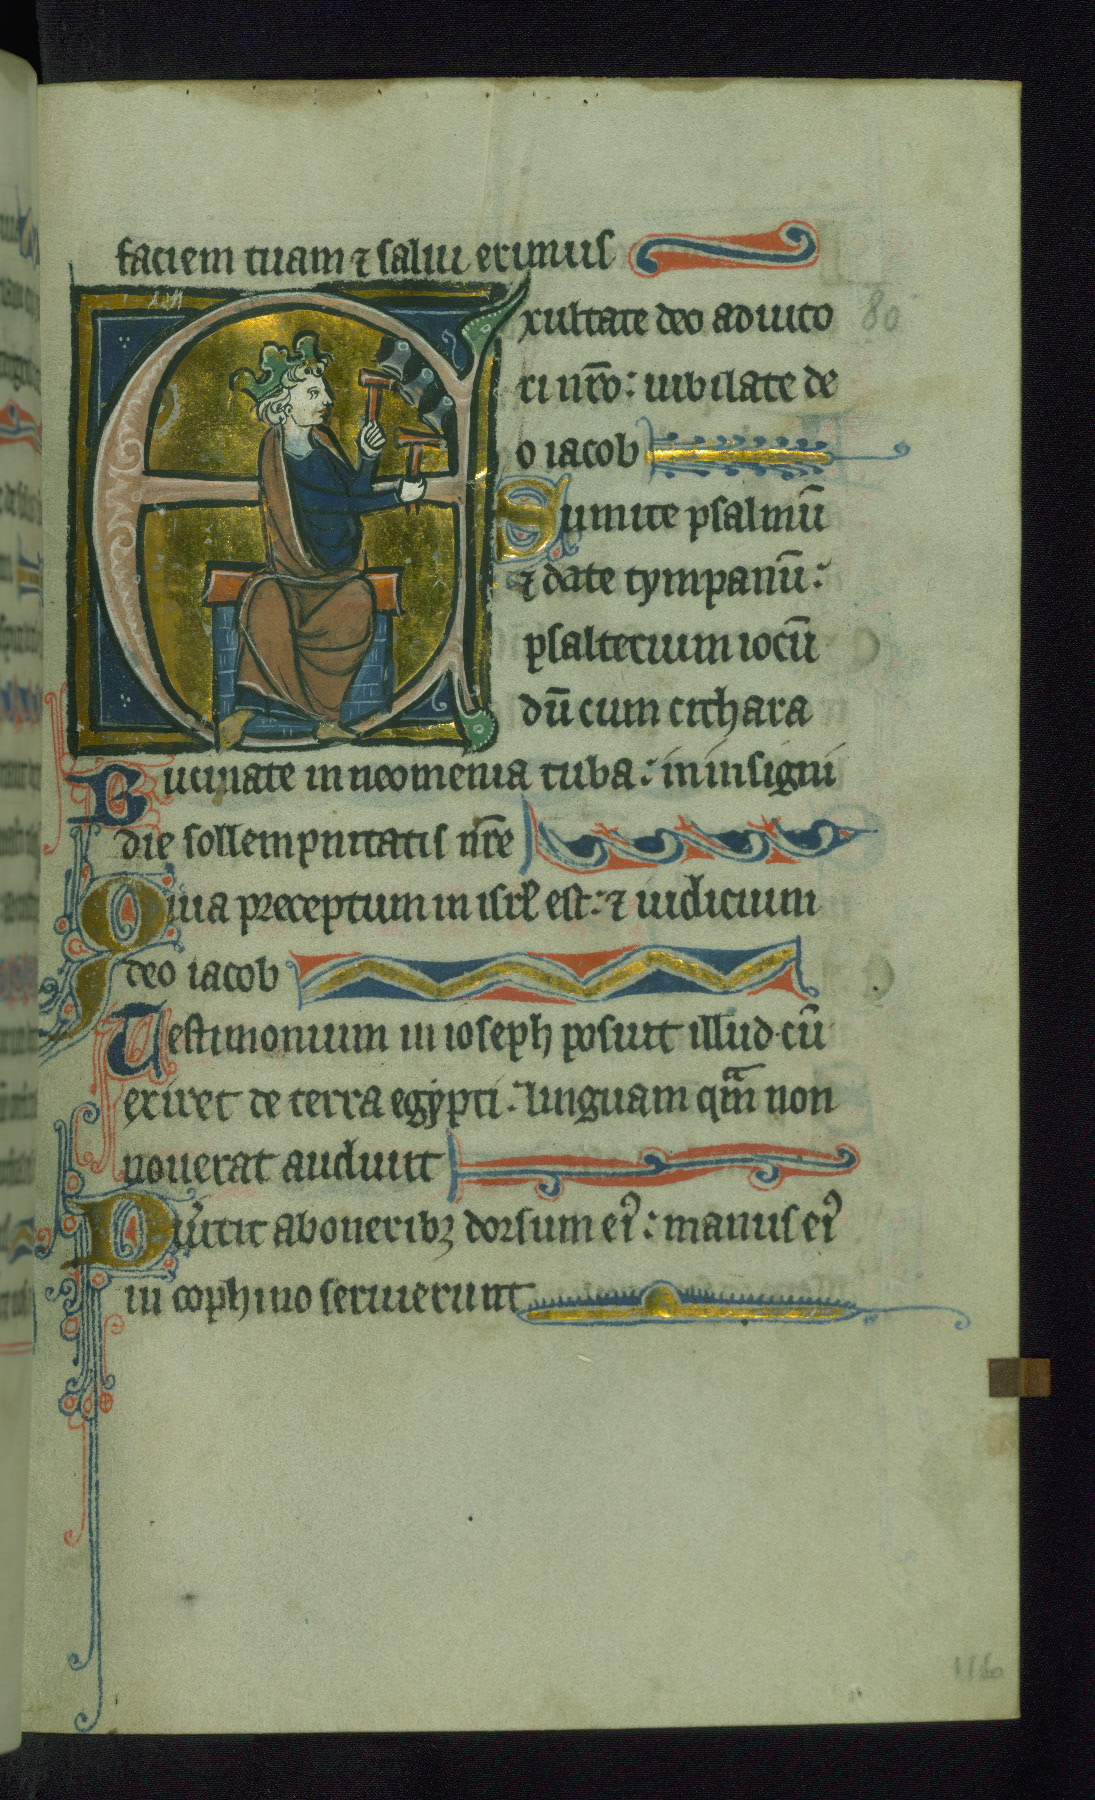 faciem tuam ⁊ salui erimus
Exultate deo adiuto
80
ri nr̄o: iubilate de
o iacob
Sumite psalmū
⁊ date tympanū:
psalterium iocū
dū cum cithara
Bucinate in neomenia tuba: in insigni
die sollempnitatis nr̄e
Quia preceptum in isrl̄ est: ⁊ iudicium
deo iacob
Testimonium in ioseph posuit illud cū
exiret de terra egypti: linguam qm̄ non
nouerat audiuit
Diuertit ab oneribꝫ dorsum ei᷒: manus ei᷒
in cophino seruierunt
116